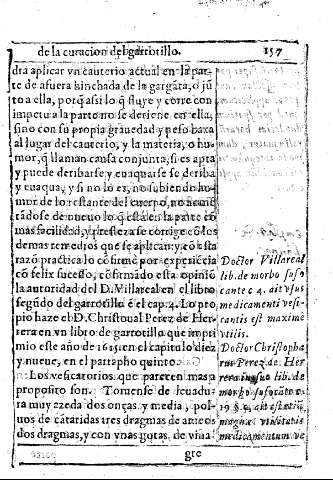 de la curacion del garrotillo. 157
drá aplicar vn cauterio actual en la par-
te de afuera hinchada de la gargāta, o jũ
to a ella, porq̃ assi lo q̃ fluye y corre con
impetu a la parte no se detiene en ella,
sino con su propia grauedad y peso baxa
al lugar del cauterio, y la materia, o hu-
mor, q̃ llaman causa conjunta, si es apta
y puede deribarse y euaquarse se deriba
y euaqua, y si no lo es, no subiendo hu-
mor de lo restante del cuerpo, no
tādose de nueuo lo q̃ està en la parte cō
mas facilidad, y presteza se corrige cō los
demas remedios que se aplican: y cō esta
razō practica lo cōfirme por experiēcia
cō felix sucesso, cōfirmādo esta opiniō
la autoridad del D. Villareal en el libro
segũdo del garrotillo ē el cap. 4. Lo pro
pio haze el D. Christoual Perez de Her-
rera en vn libro de garrotillo que impri
mio este año de 1615. en el capitulo diez
y nueue, en el parrapho quinto.
Los vesicatorios que parecen mas a
proposito son. Tomense de leuadu
ra muy azeda dos onças y media, pol-
uos de cātaridas tres dragmas de ameos
dos dragmas, y con vnas gotas de vina-
gre
Doctor Villareal
lib. de morbo suffo
cante c. 4. ait vsus
medicamenti vesi-
cantis est maximè
vtilis.
Doctor Christopha
rus Perez de Her-
rera in suo lib. de
morbo suffocāte c.
19 §. 5. ait
magnæ vtilitatis
medicamentum ve